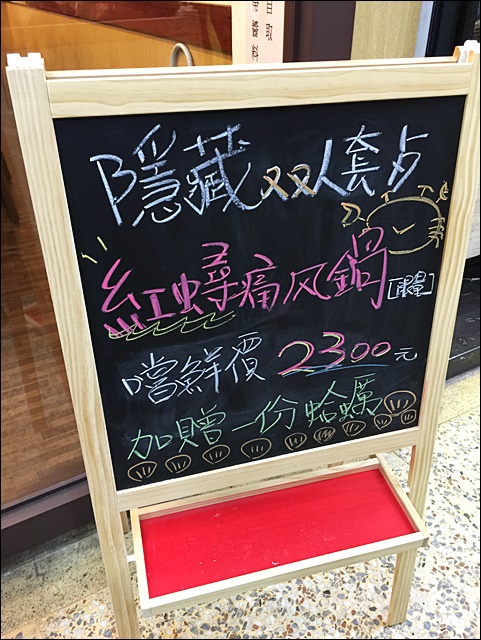 隱藏双人套卢
紅蟳痛风鍋[限量]
嚐鮮價 2300元
加贈一份蛤蠣